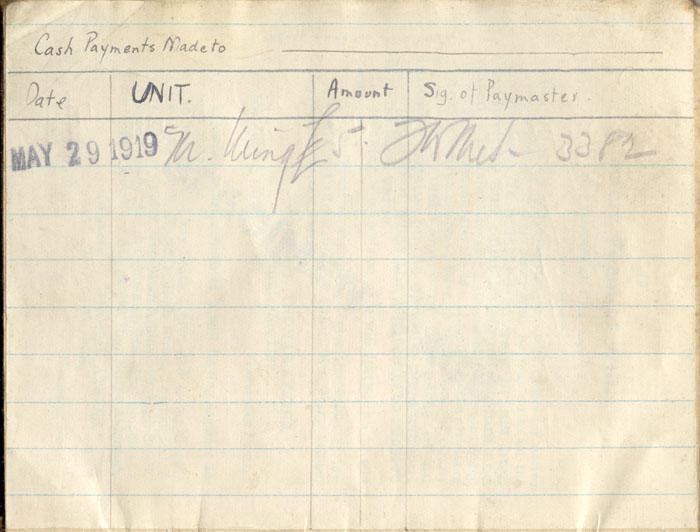 Cash Payments Made to
Date UNIT. Amount Sig. of Paymaster.
MAY 29 1919 5 3382